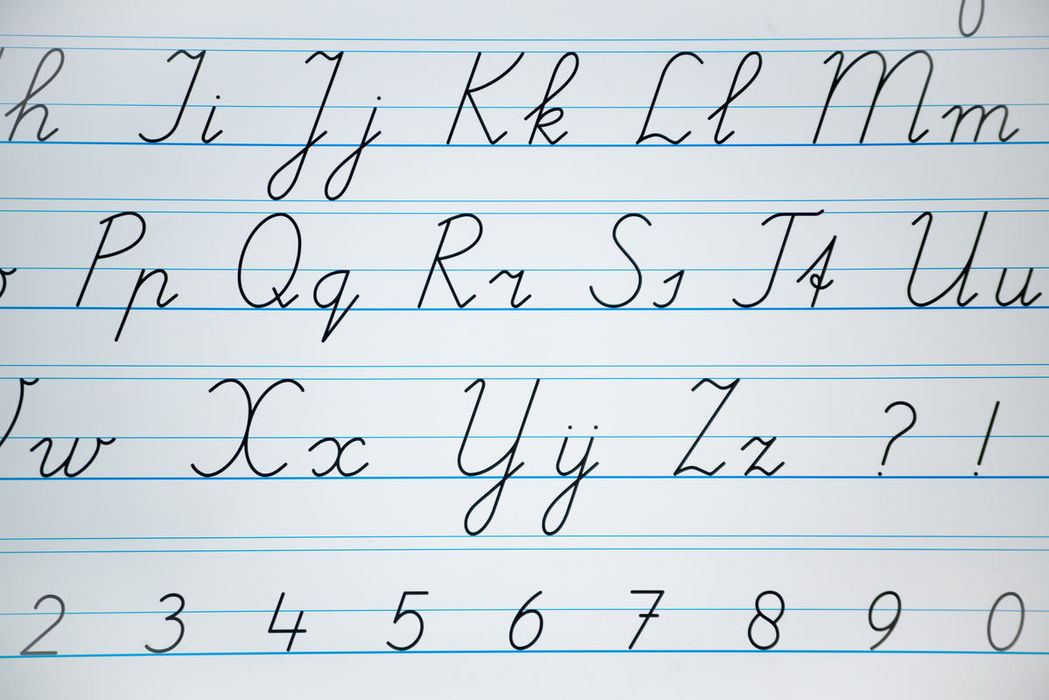 h Ii Jj Kk Ll Mm
Pp Qq Rr Ss Tt Uu
w Xx Yÿ Zz ? !
2 3 4 5 6 7 8 9 0